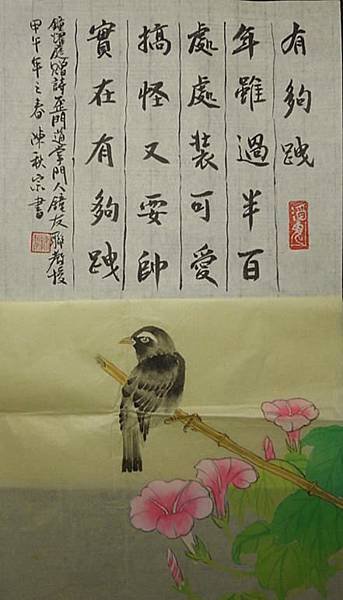 有夠跩
年雖過半百
處處裝可愛
搞怪又耍帥
實在有夠跩
鐘燿彥贈詩歪門道掌門人鐘友聯教授
甲午年之春陳秋宗書